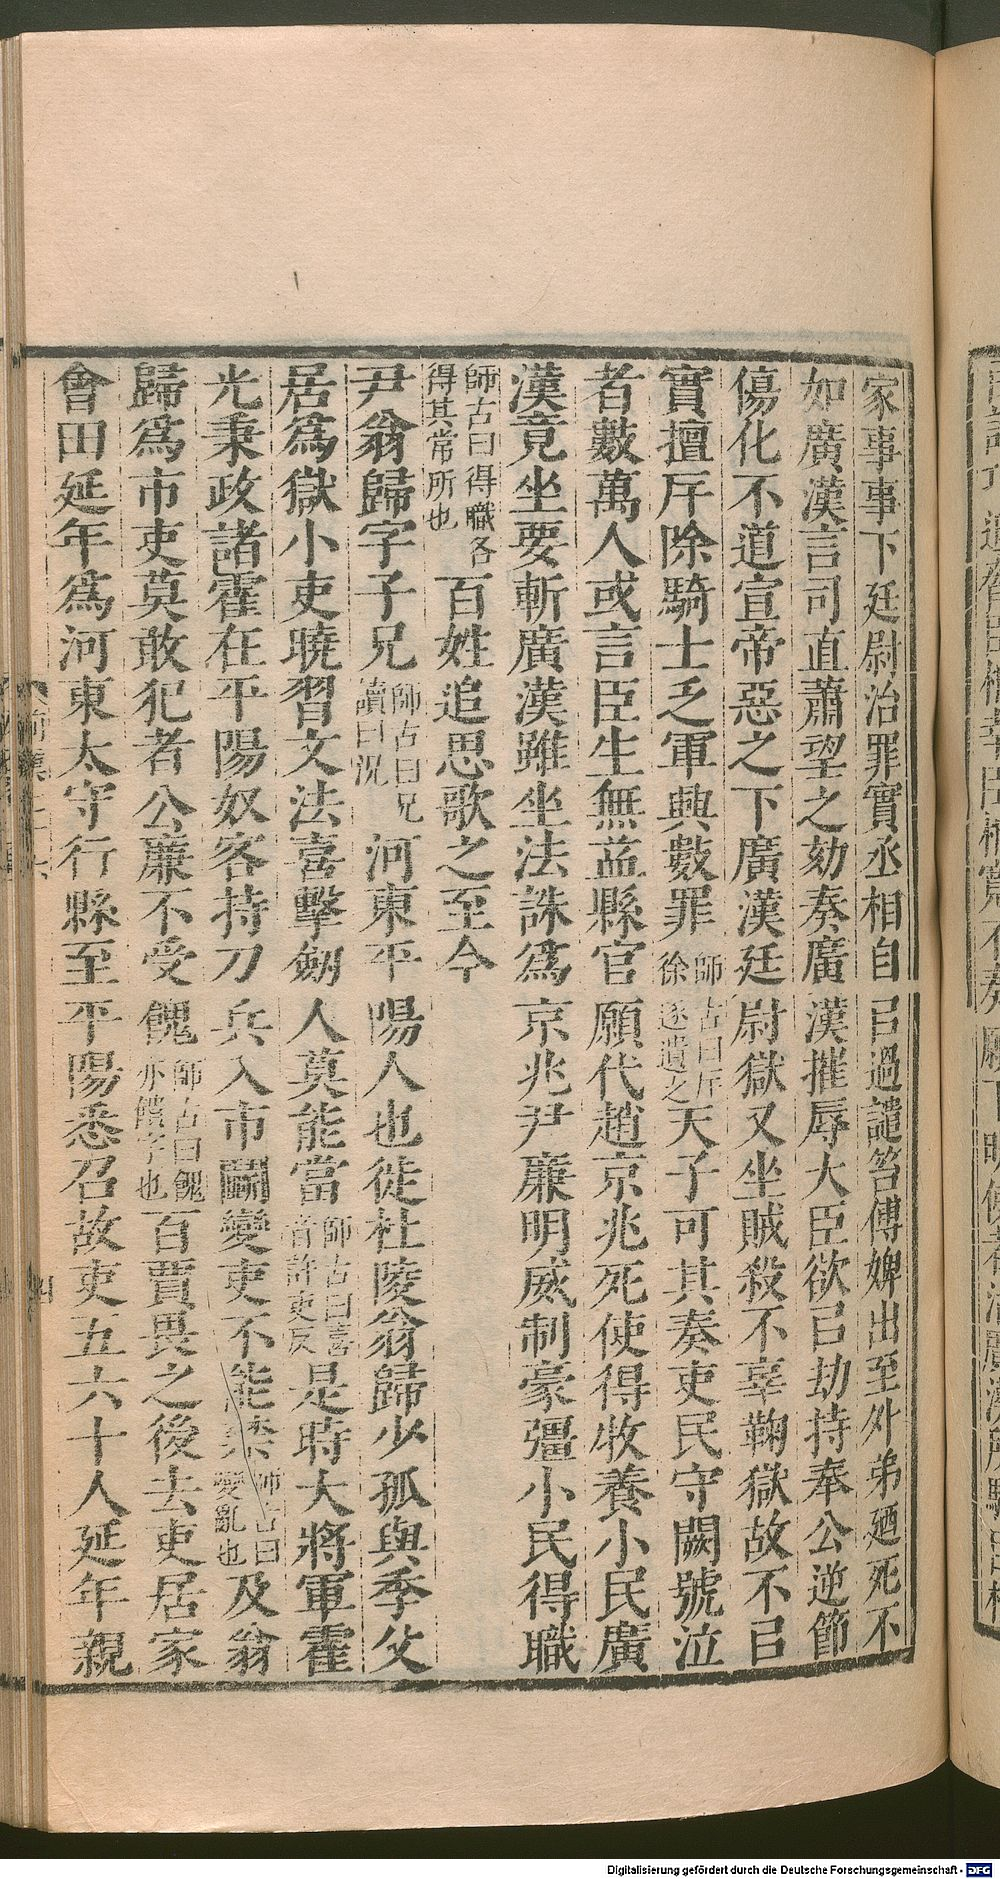 家事事下廷尉治罪實丞相自㠯過譴笞傅婢出至外弟廼死不
如廣漢言司直蕭望之劾奏廣漢摧辱大臣欲㠯劫持奉公逆節
傷化不道宣帝惡之下廣漢廷尉獄又坐賊殺不辜鞠獄故不㠯
實擅斥除騎士乏軍興數罪師古曰斥徐逐遺之天子可其奏吏民守闕號泣
者數萬人或言臣生無益縣官願代趙京兆死使得收養小民廣
漢竟坐要斬廣漢雖坐法誅爲京兆尹廉明威制豪彊小民得職
師古曰得職各得其常所也百姓追思歌之至今
尹翁歸字子兄師古曰兄讀曰況河東平陽人也徙杜陵翁歸少孤與季父
居爲獄小吏曉習文法喜擊劒人莫能當師古曰喜音許吏反是時大將軍霍
光秉政諸霍在平陽奴客持刀兵入市鬭變吏不能禁師古曰變亂也及翁
歸爲市吏莫敢犯者公廉不受餽師古曰餽亦饋字也百賈畏之後去吏居家
會田延年爲河東太守行縣至平陽悉召故吏五六十人延年親
Digitalisierung gefördert durch die Deutsche Forschungsgemeinschaft - DFG